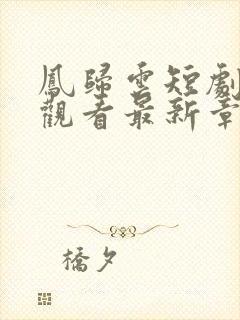 鳳歸雲短劇
觀看最新章
橋夕